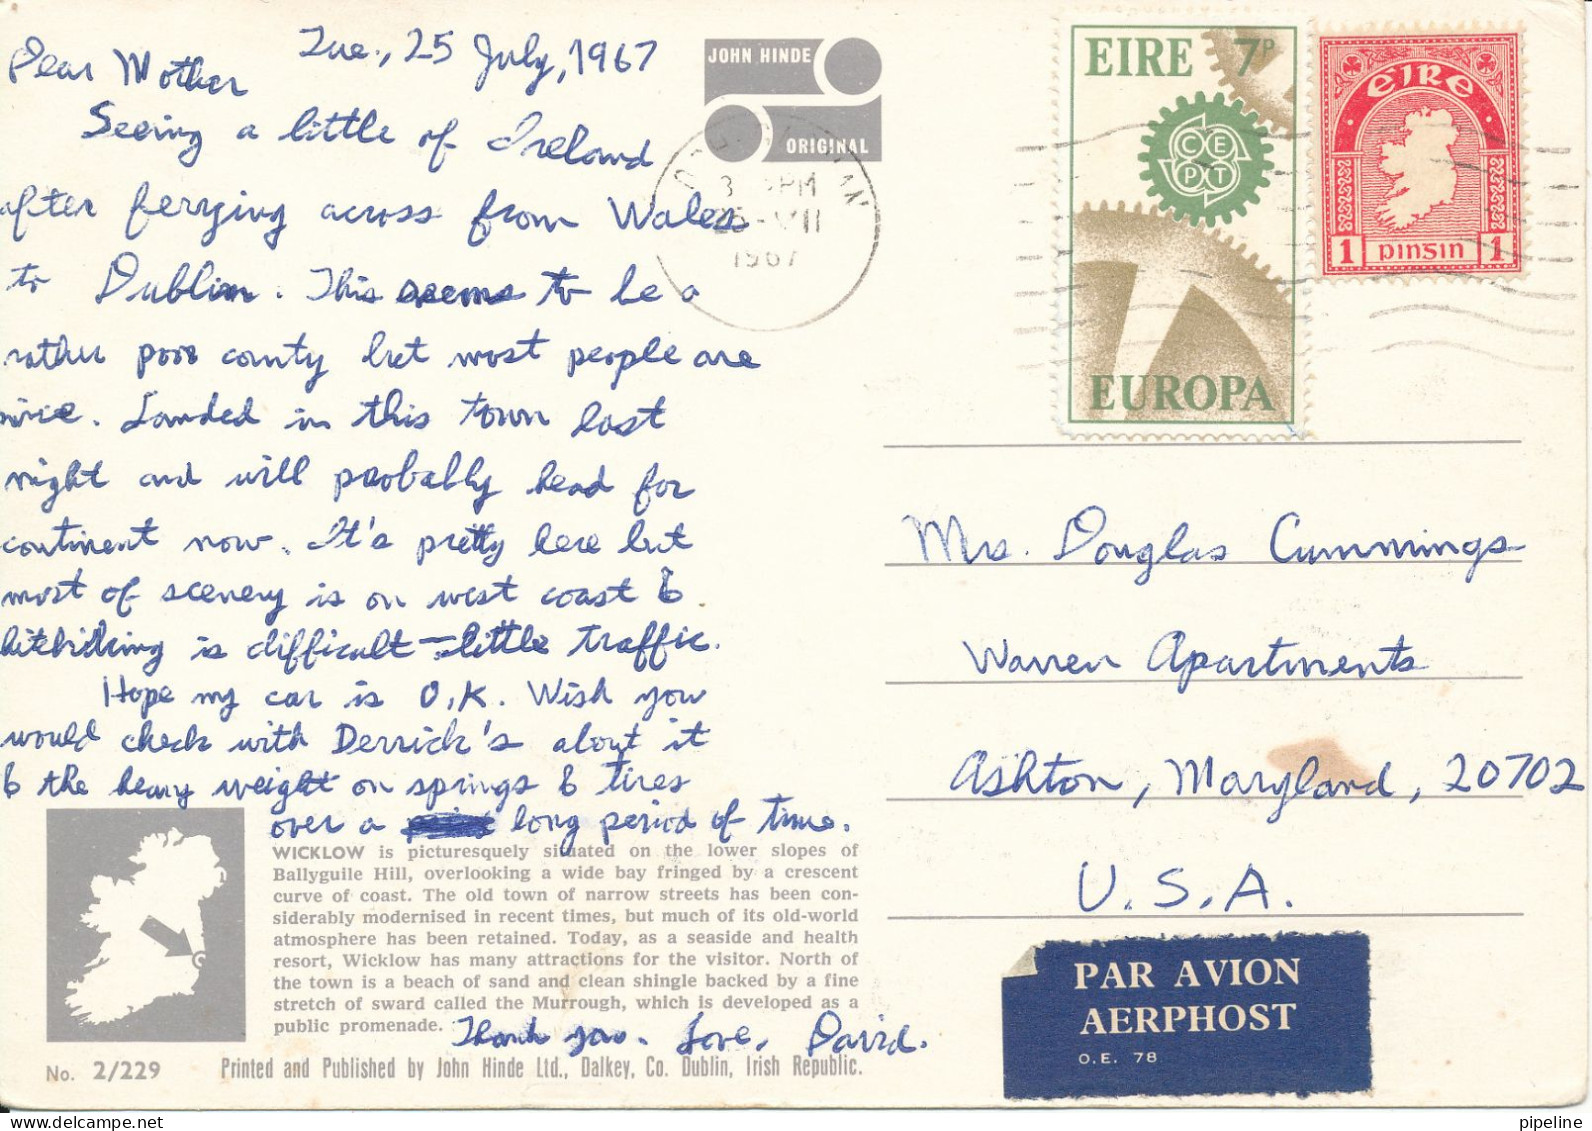 Tue., 25 July, 1967
Dear Mother
Seeing a little of Ireland
after ferrying across from Wales
to Dublin. This seems to be a
rather poor county but most people are
nice. Landed in this town last
night and will probably head for
continent now. It's pretty here but
most of scenery is on west coast &
hitchhiking is difficult – little traffic.
Hope my car is O.K. Wish you
would check with Derrick's about it
& the heavy weight on springs & tires
over a long period of time.
WICKLOW is picturesquely situated on the lower slopes of
Ballyguile Hill, overlooking a wide bay fringed by a crescent
curve of coast. The old town of narrow streets has been con-
siderably modernised in recent times, but much of its old-world
atmosphere has been retained. Today, as a seaside and health
resort, Wicklow has many attractions for the visitor. North of
the town is a beach of sand and clean shingle backed by a fine
stretch of sward called the Murrough, which is developed as a
public promenade.
Thank you. Love, David.
No. 2/229
Printed and Published by John Hinde Ltd., Dalkey, Co. Dublin, Irish Republic.
JOHN HINDE
ORIGINAL
PM
VII
1967
EIRE 7P
C E
P T
EUROPA
EIRE
1 PINSIN 1
Mrs. Douglas Cummings
Warren Apartments
Ashton, Maryland, 20702
U.S.A.
PAR AVION
AERPHOST
O.E. 78
pipeline